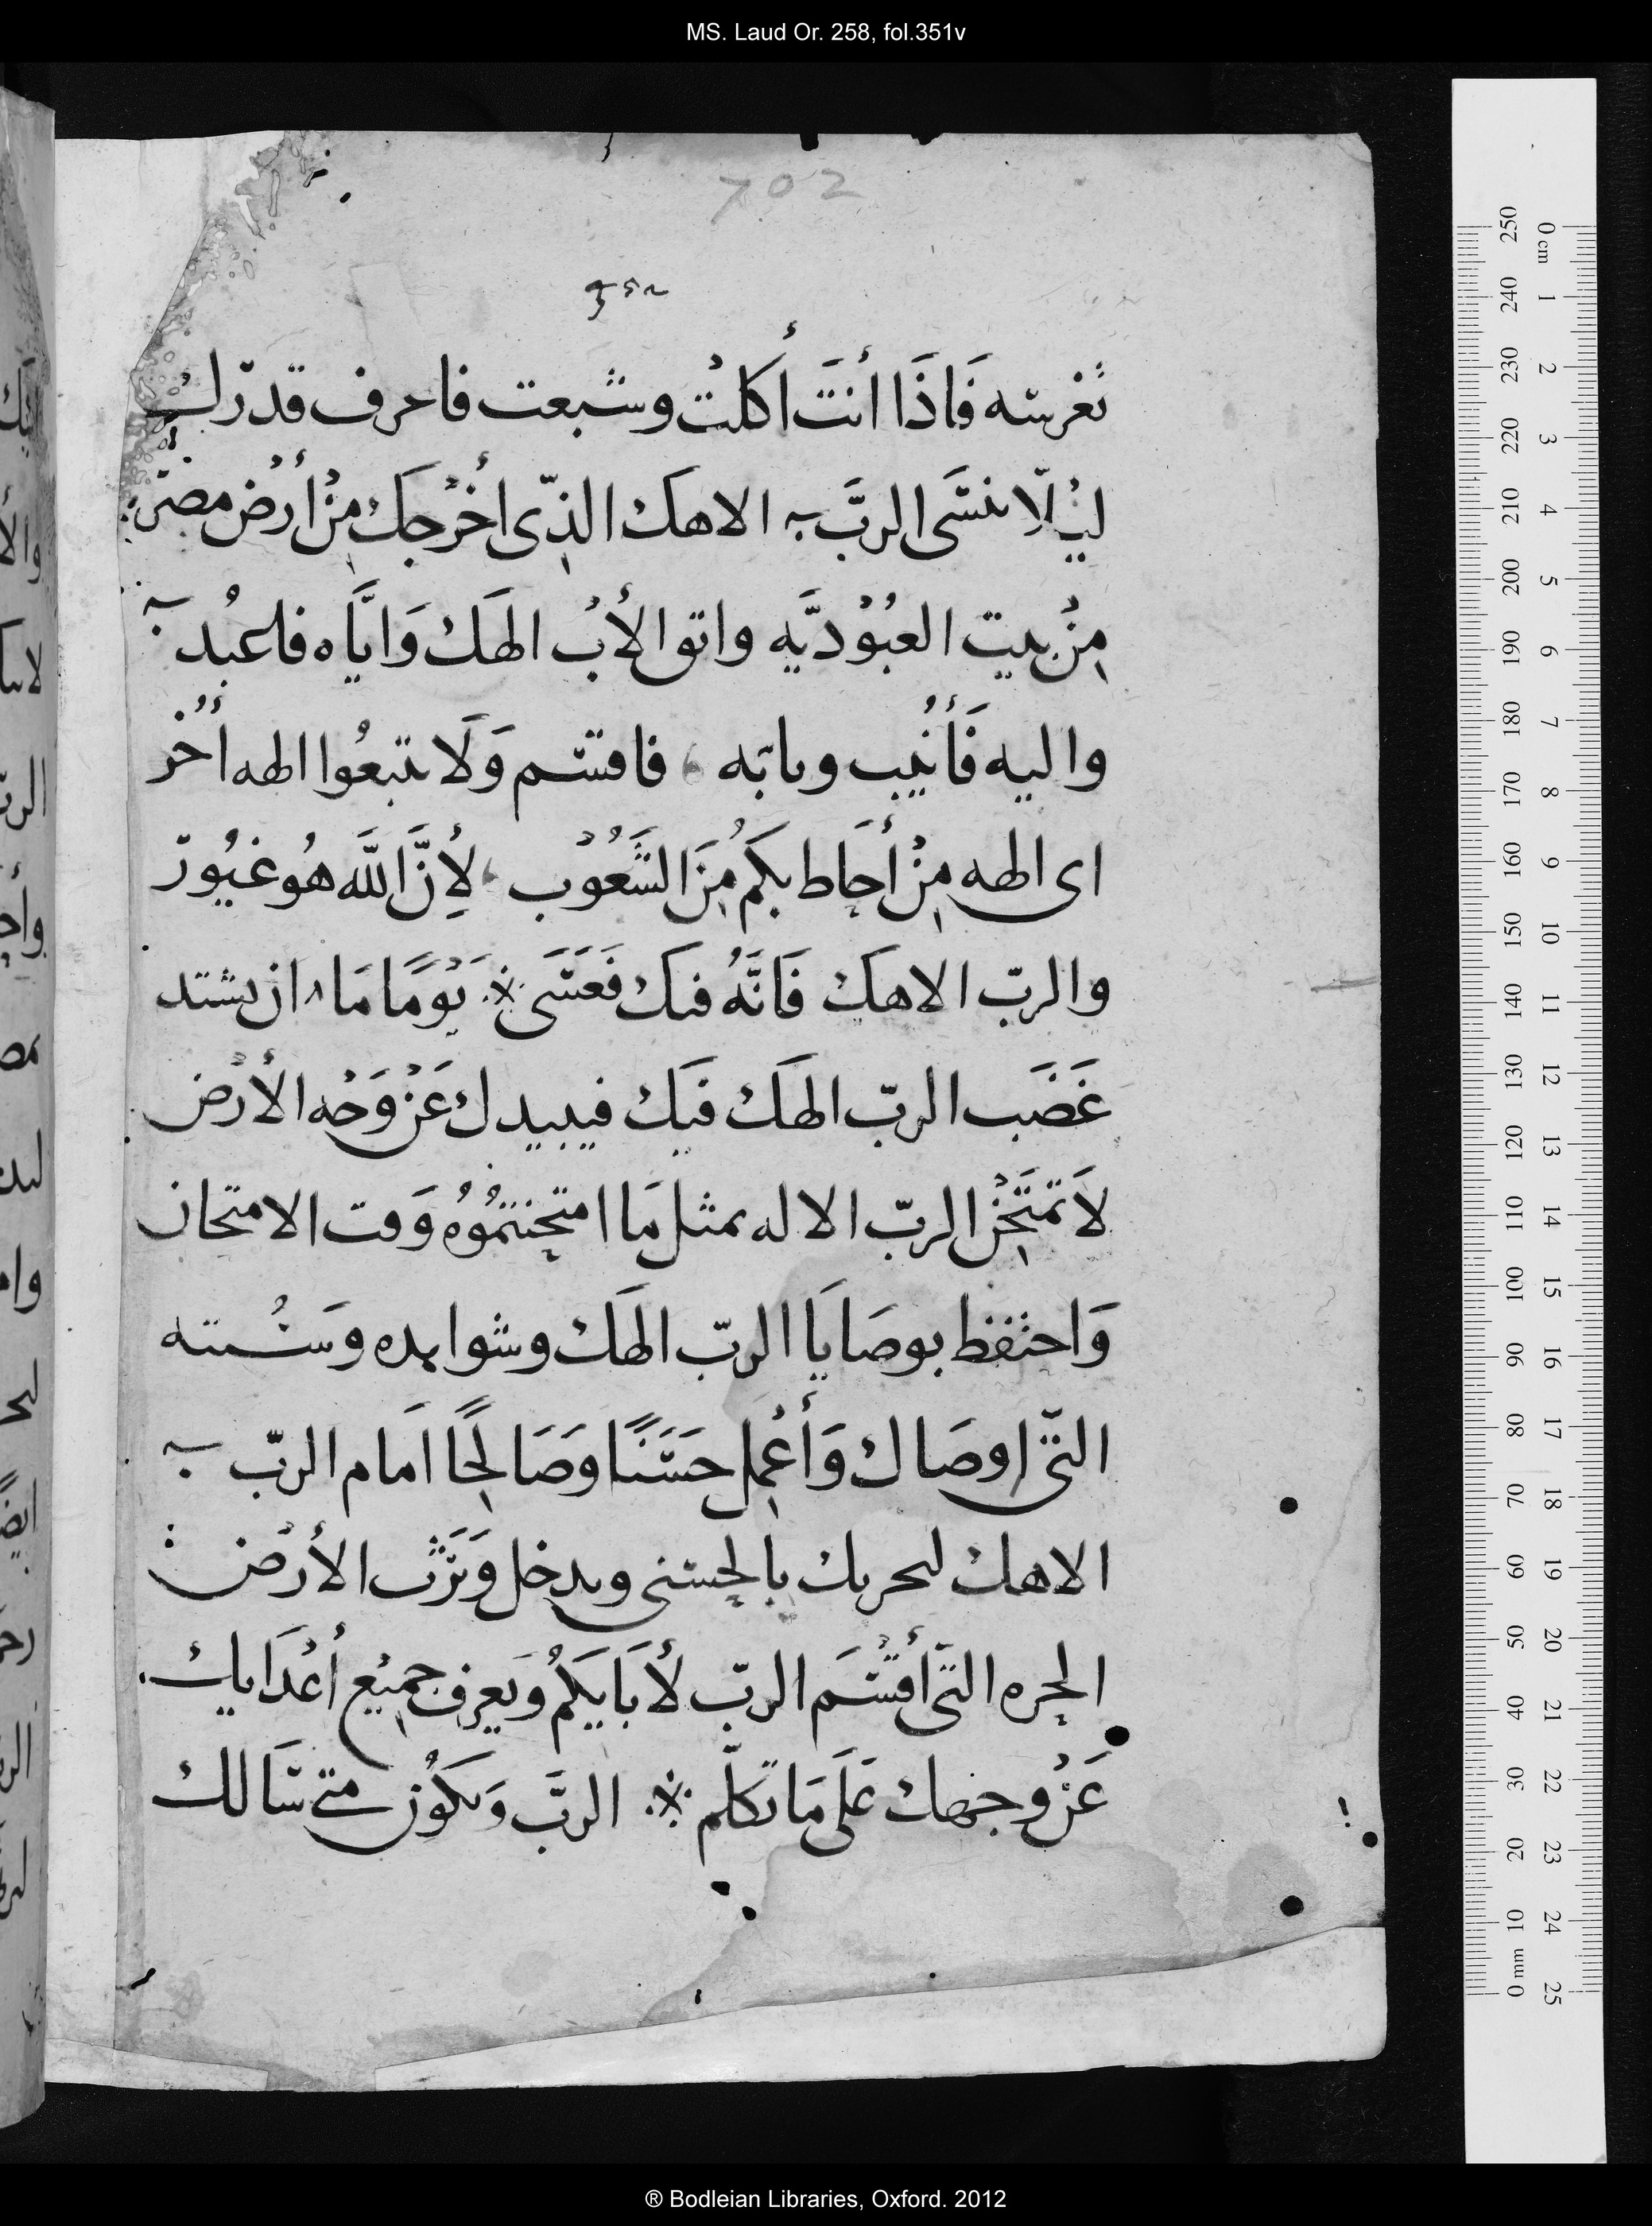 MS. Laud Or. 258, fol.351v
702
تغرسه فَاذَا أنتَ أكلتْ وشبعت فاحرف قدر
ليْلّا تنسَى الربَّ الاهك الذّى أخْرجَكْ مِنْ أرْض مصر
مِنْ بيت العُبُوْديَّه واتو الأبْ الهَك وَايَّاه فاعبُد
واليه فَأنيْب وبابّه فاقسم وَلَا تتبعُوا الهه أخُر
اى الهه مِنْ أحَاط بكمُ مِنَ الشَّعُوْب لأِنَّ اللَّه هُو غيُور
والربّ الاهَك فَانَّهُ فيك فَعَسَى ※ يَوْمًا مَا ان يشتد
غَضَب الربّ الهَك فيَك فيبيدك عَنْ وَجْه الأرْض
لَا تمتَحِنْ الربّ الاله بمثل مَا امتحِنتمُوهُ وَقت الامتحان
وَاحتفظ بوصَايَا الربّ الهَك وشواهده وسَنُنته
التّى اوصَاك وَأعْمِل حَسَنًا وَصَالِحًا امَام الربّ
الاهك لىحريك بالحِسنى وىدخل وَتَرَث الأرْض
الخِيره التّى أقسَم الربّ لأبَايكَمُ وَيعرِف جميْع أعْدَايك
عَنْ وجهك عَلَى مَا تكلّم ※ الربَّ وَيكوُن متى سَالك
0 cm 1 2 3 4 5 6 7 8 9 10 11 12 13 14 15 16 17 18 19 20 21 22 23 24 25
250 240 230 220 210 200 190 180 170 160 150 140 130 120 110 100 90 80 70 60 50 40 30 20 10 0 mm
® Bodleian Libraries, Oxford. 2012